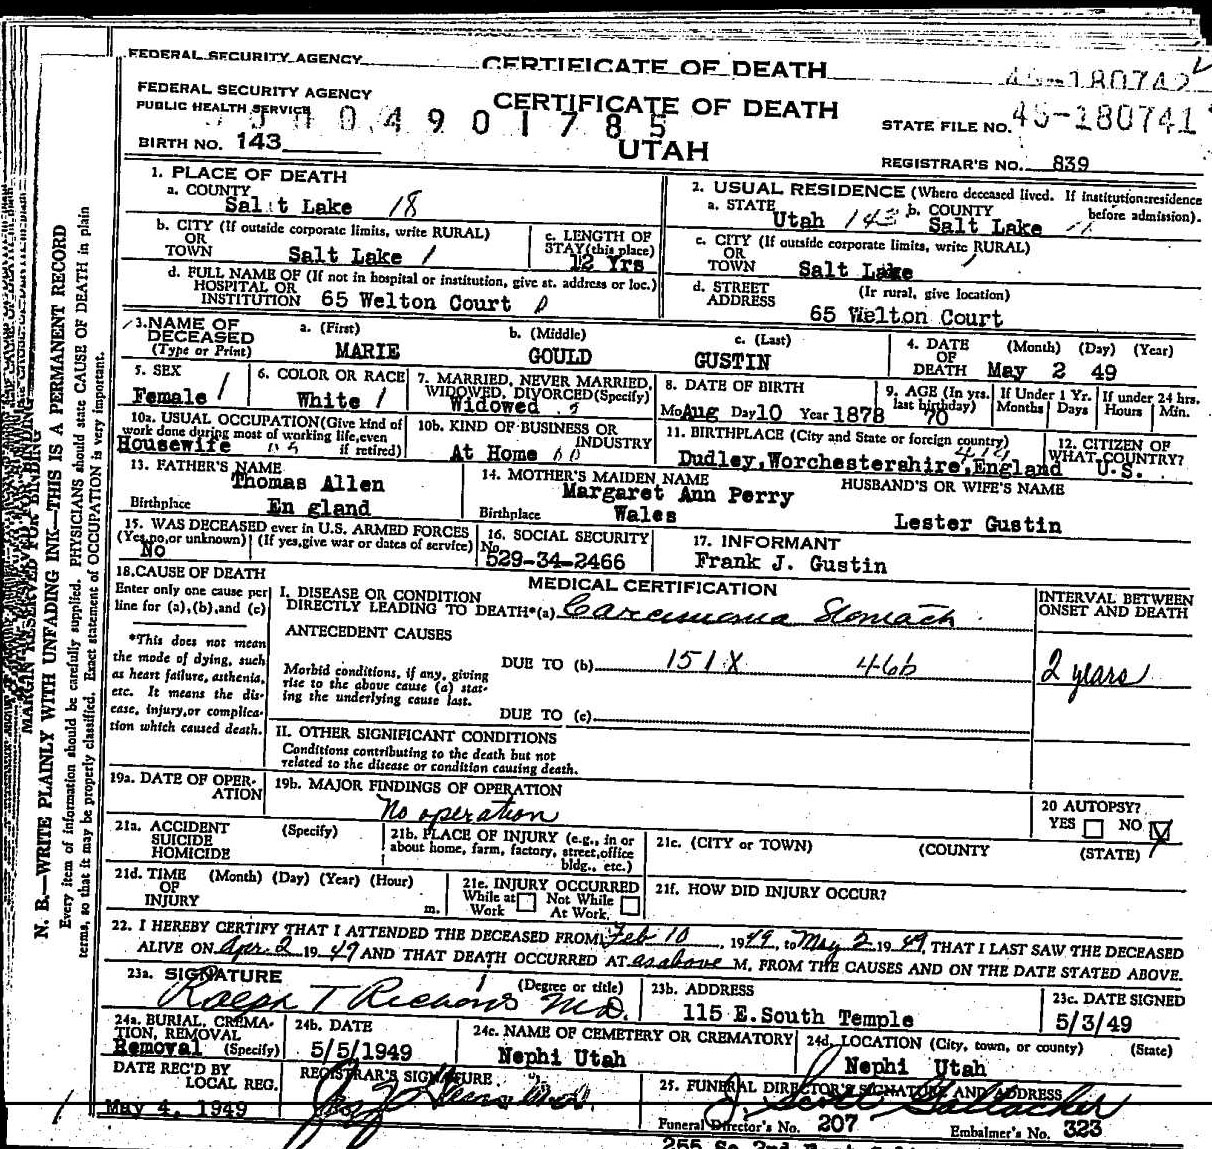 FEDERAL SECURITY AGENCY CERTIFICATE OF DEATH 45-180742
FEDERAL SECURITY AGENCY
PUBLIC HEALTH SERVICE
CERTIFICATE OF DEATH
STATE FILE NO. 45-180741
0 4 9 0 1 7 8 5
BIRTH NO. 143
UTAH
REGISTRAR'S NO. 839
1. PLACE OF DEATH
a. COUNTY
Salt Lake 18
2. USUAL RESIDENCE (Where deceased lived. If institution:residence before admission).
a. STATE Utah 143 b. COUNTY Salt Lake
b. CITY (If outside corporate limits, write RURAL)
OR
TOWN Salt Lake 1
c. LENGTH OF
STAY(this place)
12 Yrs
c. CITY (If outside corporate limits, write RURAL)
OR
TOWN Salt Lake
d. FULL NAME OF (If not in hospital or institution, give st. address or loc.)
HOSPITAL OR
INSTITUTION 65 Welton Court
d. STREET
ADDRESS
(If rural, give location)
65 Welton Court
3. NAME OF
DECEASED
(Type or Print)
a. (First)
MARIE
b. (Middle)
GOULD
c. (Last)
GUSTIN
4. DATE (Month) (Day) (Year)
OF
DEATH May 2 49
5. SEX
Female 1
6. COLOR OR RACE
White 1
7. MARRIED, NEVER MARRIED,
WIDOWED, DIVORCED(Specify)
Widowed
8. DATE OF BIRTH
Mo Aug Day 10 Year 1878
9. AGE (In yrs.
last birthday)
70
If Under 1 Yr.
Months Days
If under 24 hrs.
Hours Min.
10a. USUAL OCCUPATION(Give kind of
work done during most of working life,even
if retired)
Housewife
10b. KIND OF BUSINESS OR
INDUSTRY
At Home
11. BIRTHPLACE (City and State or foreign country)
Dudley,Worchestershire,England
12. CITIZEN OF
WHAT COUNTRY?
U.S.
13. FATHER'S NAME
Thomas Allen
Birthplace En gland
14. MOTHER'S MAIDEN NAME
Margaret Ann Perry
Birthplace Wales
HUSBAND'S OR WIFE'S NAME
Lester Gustin
15. WAS DECEASED ever in U.S. ARMED FORCES
(Yes,no,or unknown) (If yes,give war or dates of service)
No
16. SOCIAL SECURITY
No.
529-34-2466
17. INFORMANT
Frank J. Gustin
18. CAUSE OF DEATH
Enter only one cause per
line for (a),(b),and (c)
*This does not mean
the mode of dying, such
as heart failure, asthenia,
etc. It means the dis-
ease, injury,or complica-
tion which caused death.
MEDICAL CERTIFICATION
I. DISEASE OR CONDITION
DIRECTLY LEADING TO DEATH*(a) Carcinoma Stomach
ANTECEDENT CAUSES
DUE TO (b) 151X 46b
Morbid conditions, if any, giving
rise to the above cause (a) stat-
ing the underlying cause last.
DUE TO (c)
II. OTHER SIGNIFICANT CONDITIONS
Conditions contributing to the death but not
related to the disease or condition causing death.
INTERVAL BETWEEN
ONSET AND DEATH
2 years
19a. DATE OF OPER-
ATION
19b. MAJOR FINDINGS OF OPERATION
No operation
20 AUTOPSY?
YES NO
21a. ACCIDENT (Specify)
SUICIDE
HOMICIDE
21b. PLACE OF INJURY (e.g., in or
about home, farm, factory, street,office
bldg., etc.)
21c. (CITY or TOWN) (COUNTY) (STATE)
21d. TIME (Month) (Day) (Year) (Hour)
OF
INJURY m.
21e. INJURY OCCURRED
While at Not While
Work At Work.
21f. HOW DID INJURY OCCUR?
22. I HEREBY CERTIFY THAT I ATTENDED THE DECEASED FROM Feb 10, 1949, to May 2 1949, THAT I LAST SAW THE DECEASED
ALIVE ON Apr. 2 1949 AND THAT DEATH OCCURRED AT as above M. FROM THE CAUSES AND ON THE DATE STATED ABOVE.
23a. SIGNATURE (Degree or title)
Ralph T Richards M.D.
23b. ADDRESS
115 E.South Temple
23c. DATE SIGNED
5/3/49
24a. BURIAL, CREMA-
TION, REMOVAL
Removal (Specify)
24b. DATE
5/5/1949
24c. NAME OF CEMETERY OR CREMATORY
Nephi Utah
24d. LOCATION (City, town, or county) (State)
Nephi Utah
DATE REC'D BY
LOCAL REG.
May 4, 1949
REGISTRAR'S SIGNATURE
25. FUNERAL DIRECTOR'S SIGNATURE AND ADDRESS
J. Scott Gallacher
Funeral Director's No. 207 Embalmer's No. 323
MARGIN RESERVED FOR BINDING
N. B.—WRITE PLAINLY WITH UNFADING INK—THIS IS A PERMANENT RECORD
Every item of information should be carefully supplied. PHYSICIANS should state CAUSE OF DEATH in plain
terms, so that it may be properly classified. Exact statement of OCCUPATION is very important.